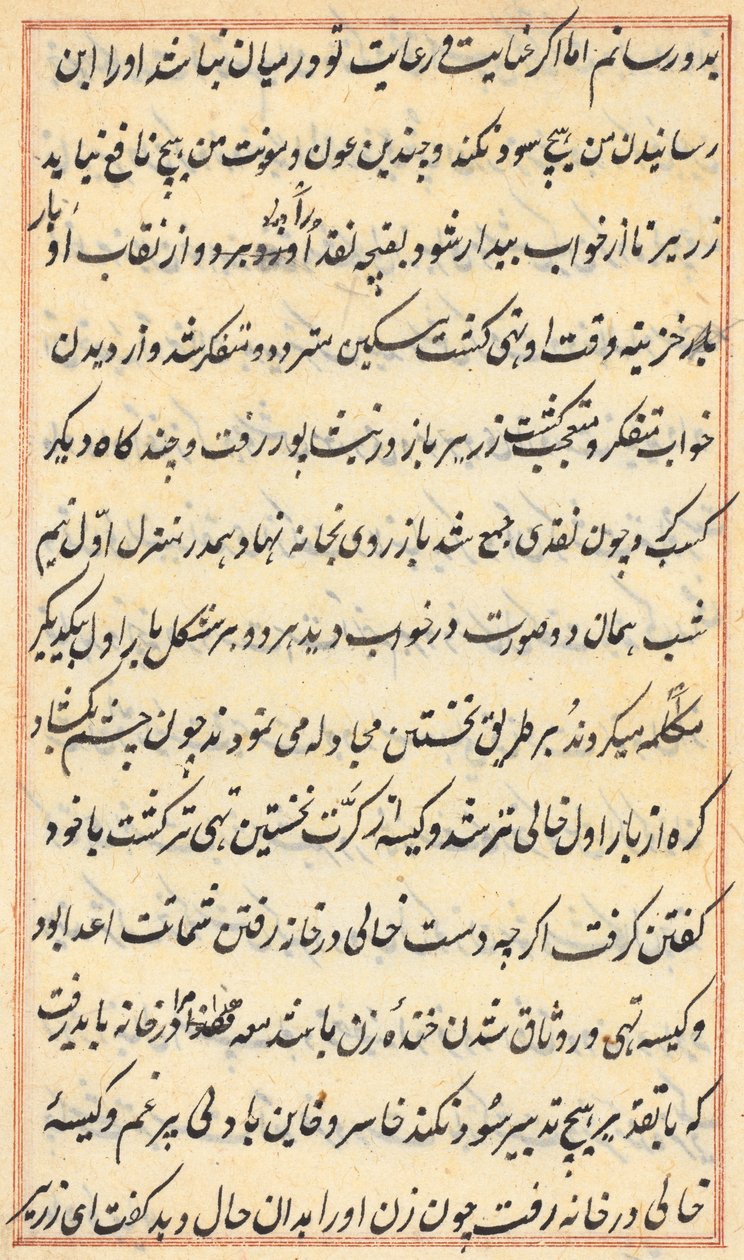 بدو رسانم اما اکر عنایت و رعایت تو درمیان نباشد اورا این
رسانیدن من هیچ سود نکند و چندین عون و مونت من هیچ نافع نیاید
زریر تا از خواب بیدار شود بقچه نقد او را از نقاب او بار
خزینه وقت او تهی کشت مسکین متردد و متفکر شد و از دیدن
خواب متفکر و متعجب کشت زریر باز در نیشاپور رفت و چند کاه دیکر
کسب کرد و چون نقدی جمع شد باز روی بخانه نهاد و همدر منزل اوّل نیم
شب همان دو صورت در خواب دید هر دو بر شکل بار اول بیکدیکر
مکالمه میکردند بر طریق نخستین مجادله می نمودند چون چشم بکشاد
کره از بار اول خالی تر شد و کیسه از کرّت نخستین تهی تر کشت با خود
کفتن کرفت اکرچه دست خالی در خانه رفتن شماتت اعدا بود
و کیسه تهی در وثاق شدن خندهٔ زن باشد مع هذا مرا در خانه باید رفت
که با تقدیر هیچ تدبیر سود نکند خاسر و خاین با دلی پر غم و کیسهٔ
خالی در خانه رفت چون زن اورا بدان حال دید کفت ای زریر